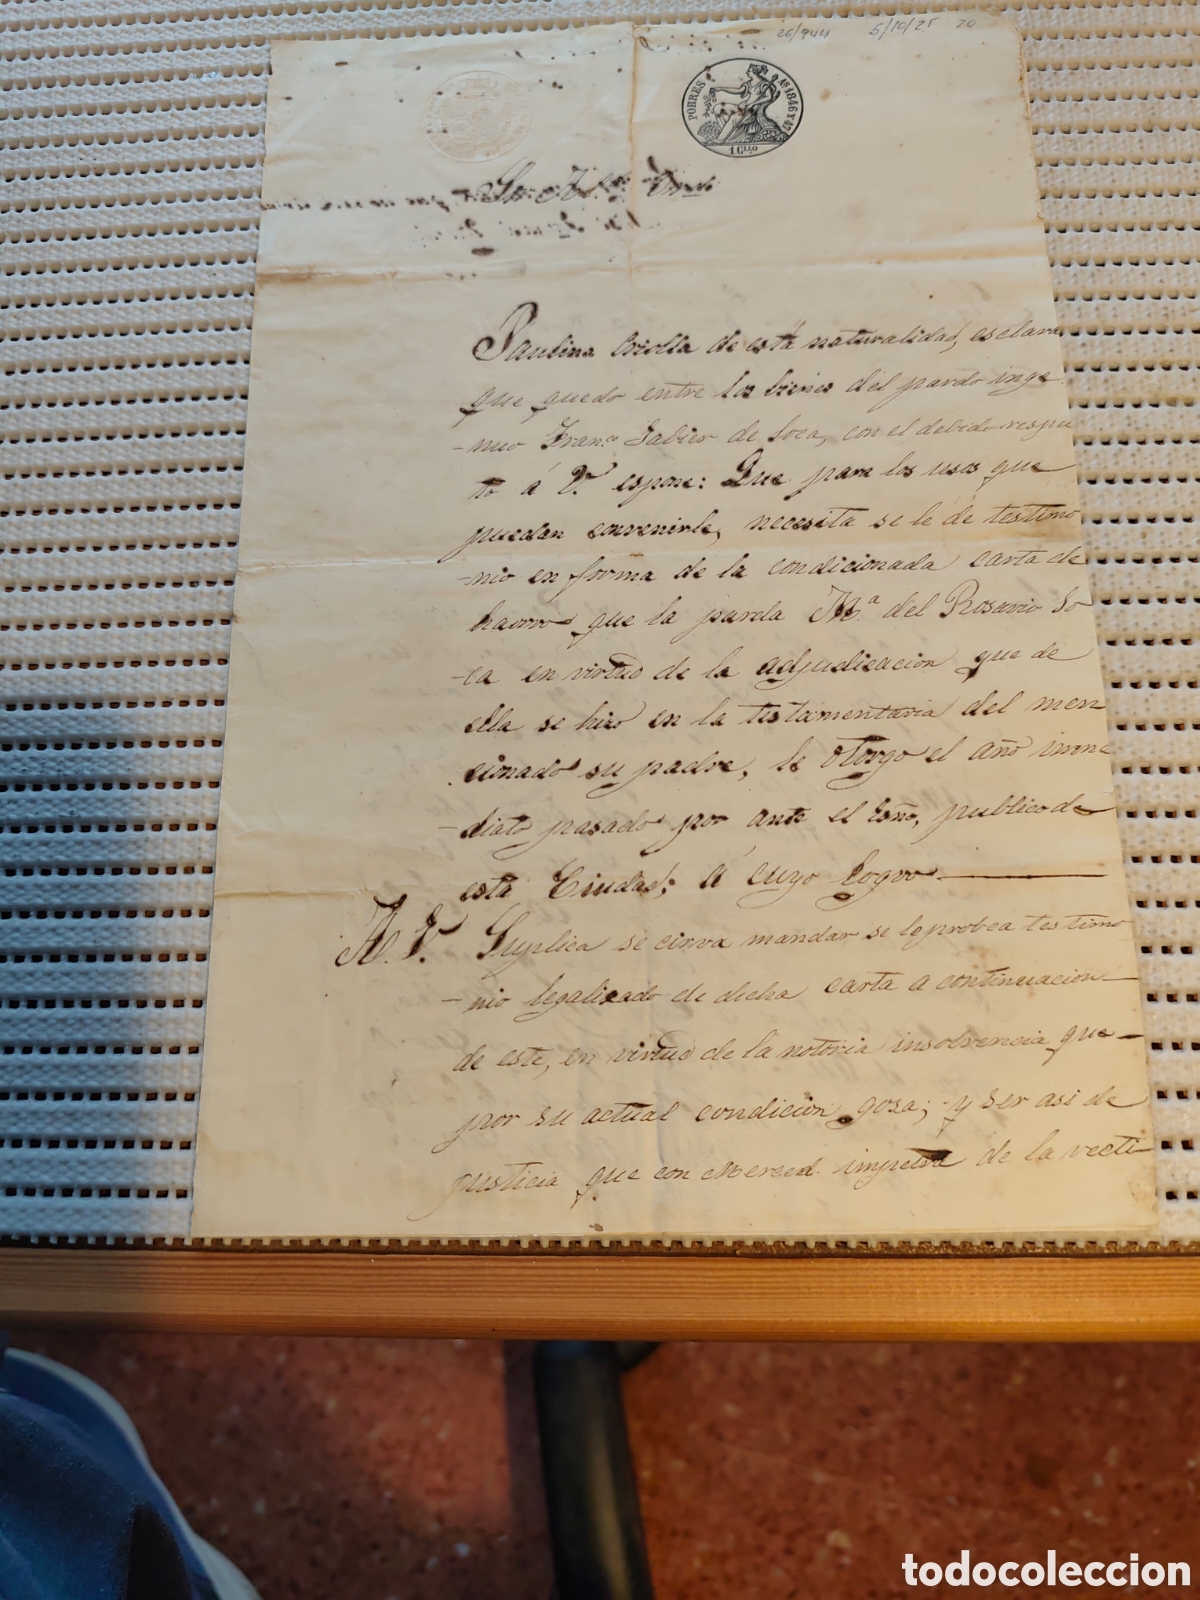 26/944 5/10/25 20
POBRES AS 1846 Y 47
Paulina Criolla de está naturalidad, esclava
que quedo entre los bienes del pardo inge
-nuo Franco. Sabier de Soca, con el debido respec
to á V. espone: Que para los usos que
puedan convenirle, necesita se le de testimo
-nio en forma de la condicionada carta de
haorro que la parda Ma. del Rosario So
-ca en virtud de la adjudicacion que de
ella se hizo en la testamentaria del men
cionado su padre, le otorgo el año inme
-diato pasado por ante el Esño, publico de
esta Ciudad; á cuyo logro
A. V. Suplica se cirva mandar se le probea testimo
-nio legalizado de dicha carta a continuacion
de este, en virtud de la notoria insolvencia que
por su actual condicion gosa; y ser asi de
justicia que con Merced. impetra de la recti
todocoleccion